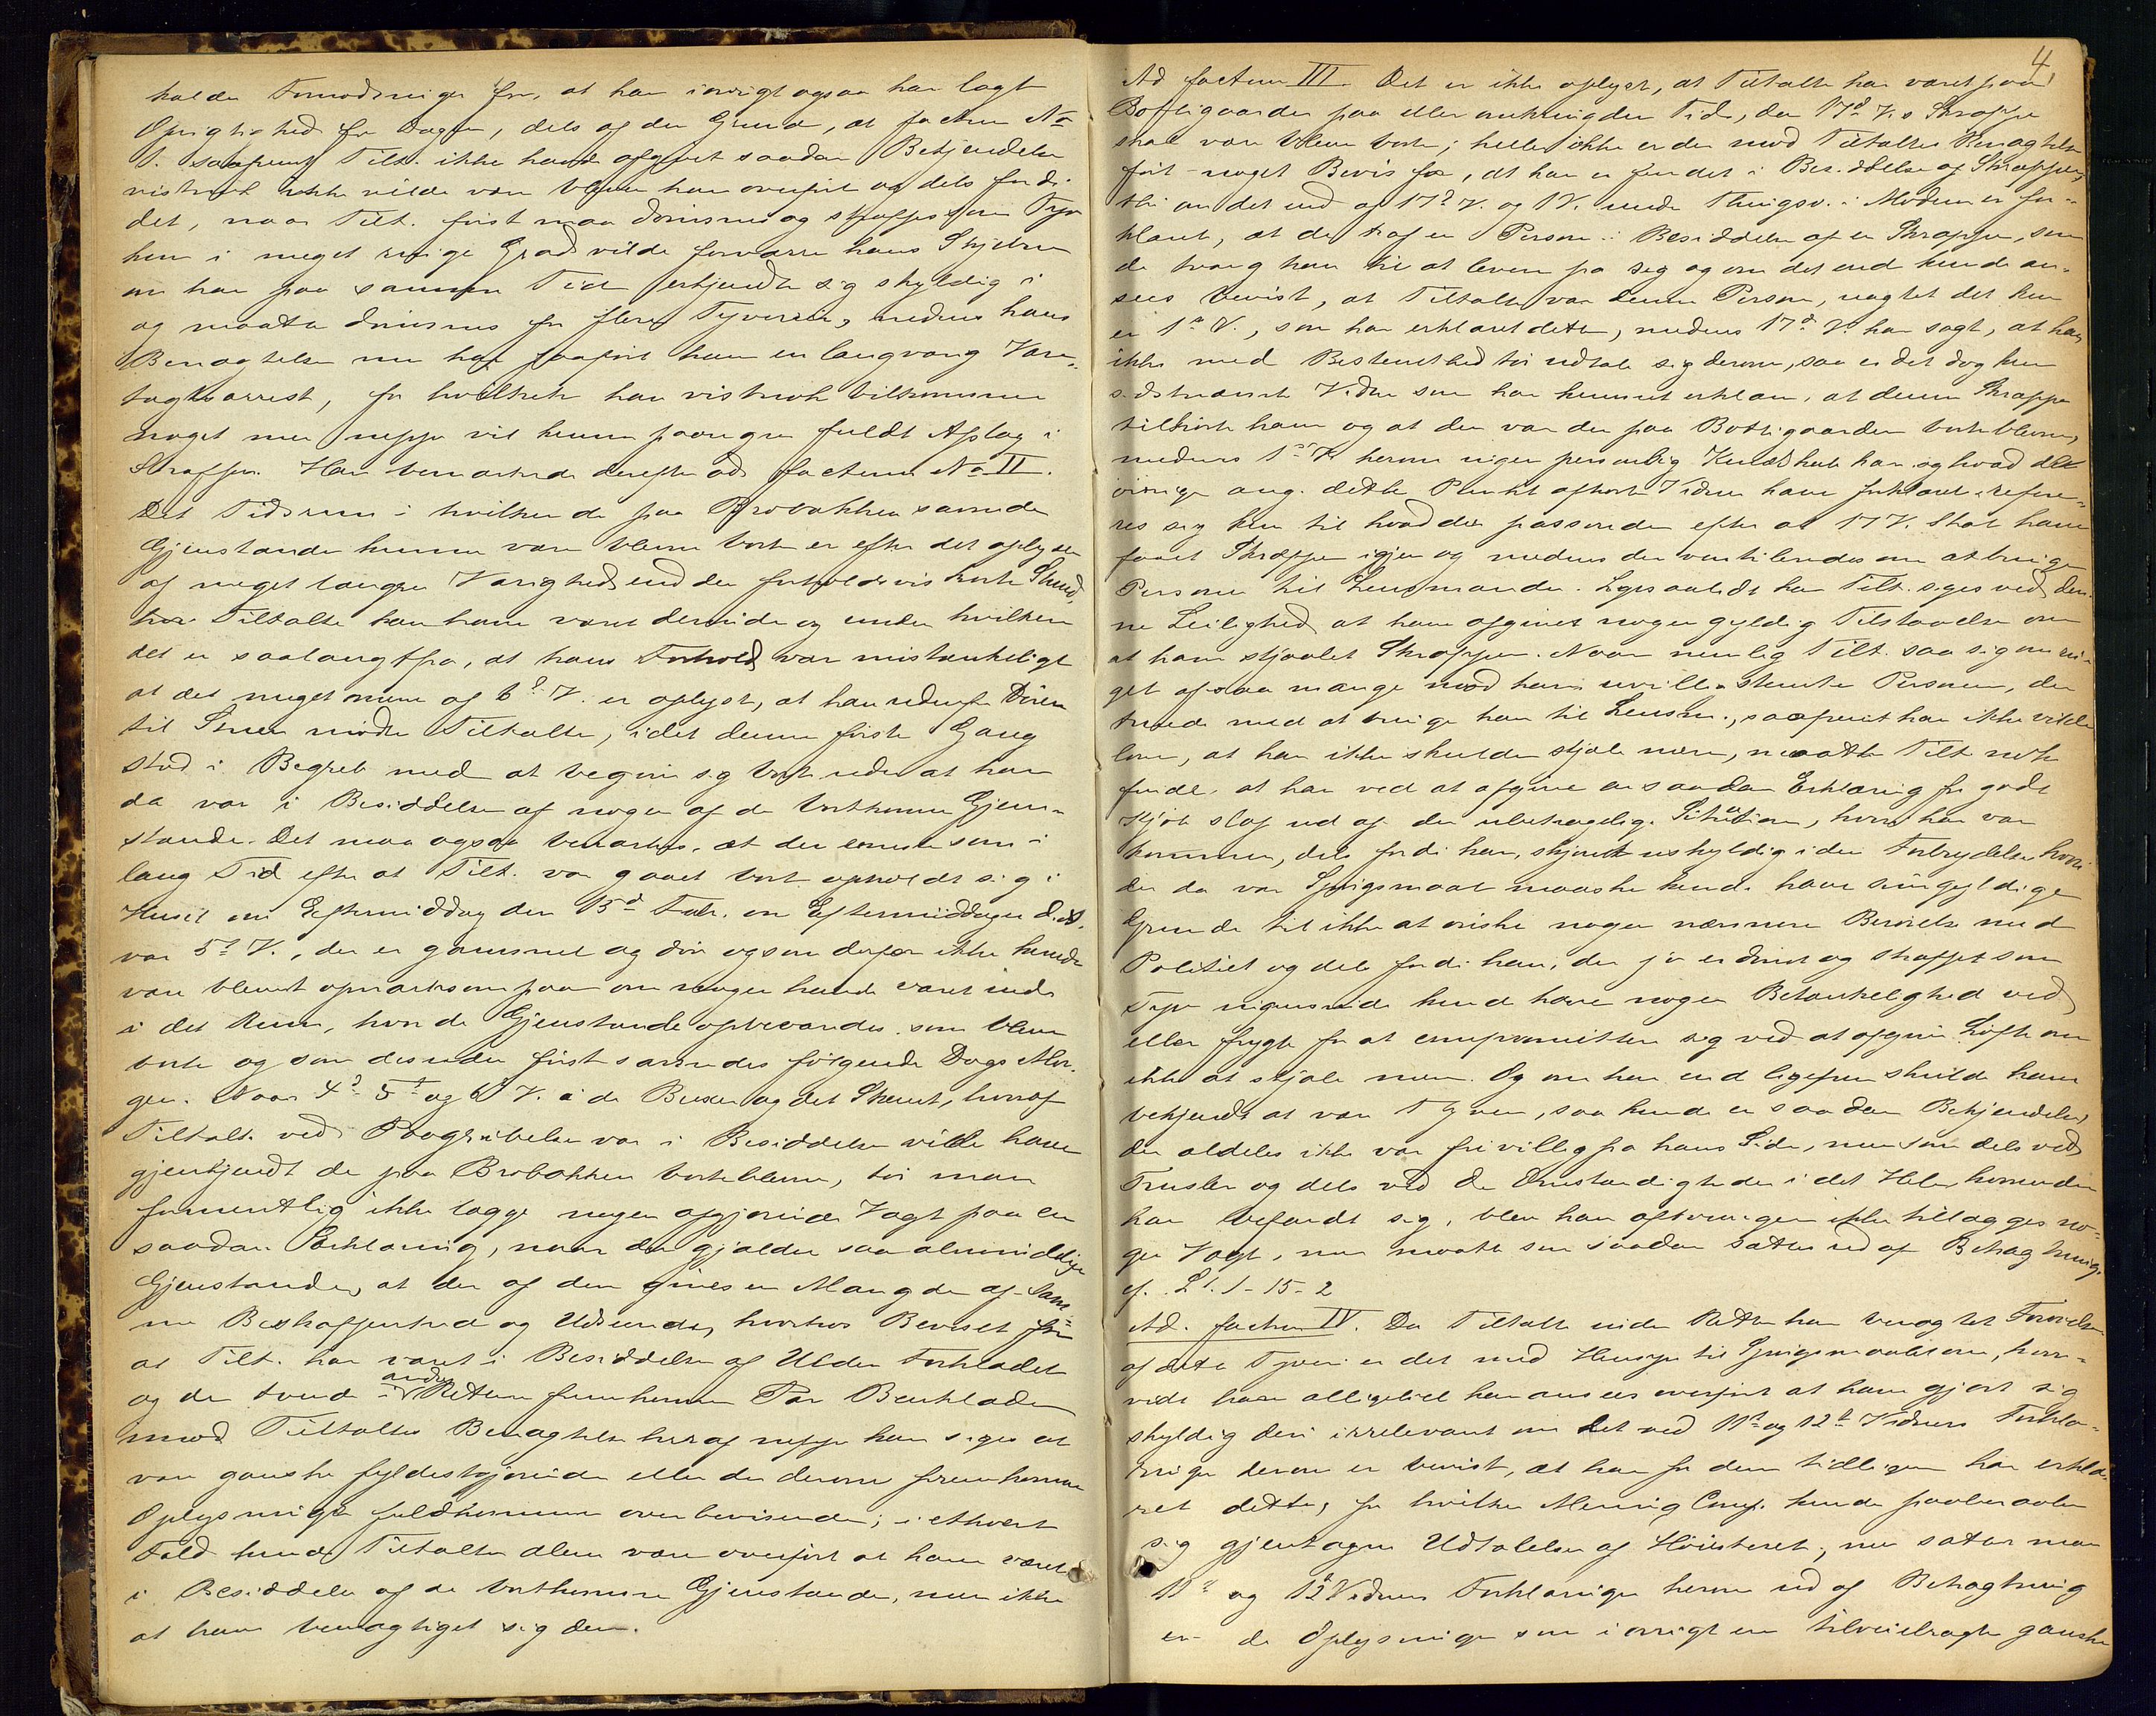 holde Formodninger for, at han iøvrigt ogsaa har lagt
Oprigtighed for Dagen, dels af den Grund, at factum No
I. saafremt Tilt. ikke havde afgivet saadan Bekjendelse
vistnok ikke vilde være bleven ham overført og dels fordi
det, naar Tilt. først maa dømmes og straffes som Tyv
kun i meget ringe Grad vilde forværre hans Skjebne
om han paa samme Tid erkjendte sig skyldig i
og maatte dømmes for flere Tyverier, medens hans
Benægtelse nu har paaført ham en langvarig Vare-
tægtsarrest, for hvilken han vistnok tilkommer
noget men neppe vil kunne paaregne fuldt Afslag i
Straffen. Han bemærkede derefter ad factum No II.
Det Tidsrum i hvilken de paa Brobakken savnede
Gjenstande kunne være blevne borte er efter det oplyste
af meget længere Varighed end den forholdsvis korte Stund,
Tiltalte kan have været derinde og under hvilken
det er saalangtfra, at hans Forhold var mistænkeligt
at det meget mere af 6te V. er oplyst, at han udenfor Døren
til Stuen mødte Tiltalte, idet denne første Gang
stod i Begreb med at begive sig bort uden at han
da var i Besiddelse af nogen af de bortkomne Gjen-
stande. Det maa ogsaa bemærkes, at den eneste som i
lang Tid efter at Tilt. var gaaet bort opholdt sig i
Huset om Eftermiddag den 13de Febr. om Eftermiddagen
var 5te V., der er gammel og døv og som derfor ikke kunde
være blevet opmærksom paa om nogen havde været inde
i det Rum, hvor de Gjenstande opbevaredes som bleve
borte og som desuden først savnedes følgende Dags Mor-
gen. Naar 4de 5te og 6te V. i de Buxer og det Skaut, hvoraf
Tiltalte ved Paagribelsen var i Besiddelse ville have
gjenkjendt de paa Brobakken bortblevne, tør man
formentlig ikke lægge nogen afgjørende Vægt paa en
saadan Forklaring, naar det gjælder saa almindelige
Gjenstande, at der af dem gives en Mængde af sam-
me Beskaffenhed og Udseende, hvorhos Beviset for
at Tilt. har været i Besiddelse af Ulden Forklædet
og de tvende andre i Retten fremkomne Par Benklæder
mod Tiltaltes Benægtelse heraf neppe kan siges at
være ganske fyldestgjørende eller de derom fremkomne
Oplysninger fuldkommen overbevisende; i ethvert
Fald kunde Tiltalte alene være overført at have været
i Besiddelse af de bortkomne Gjenstande, men ikke
at have bemægtiget sig dem.
4
Ad factum III. Det er ikke oplyst, at Tiltalte har været paa
Bottigaarden paa eller omkring den Tid, da 17de V.s Skræppe
skal være bleven borte; heller ikke er der mod Tiltaltes Benægtelse
ført noget Bevis for, at han er fundet i Besiddelse af Skræppen,
thi andet end af 17de V. og 1 V. under Thingsv. i Modum er for-
klaret, at de traf en Person i Besiddelse af en Skræppe, som
de tvang ham til at levere fra sig og om det end kunde an-
sees bevist, at Tiltalte var denne Person, uagtet det kun
er 1ste V., som har erklæret dette, medens 17de V. har sagt, at han
ikke med Bestemthed tør udtale sig derom, saa er det dog kun
sidstnævnte Vidne som har kunnet erklære, at denne Skræppe
tilhørte ham og at den var den paa Bottigaarden bortblevne,
medens 1ste V. herom ingen personlig Kundskab har og hvad de
øvrige ang. dette Punkt afhørte Vidner have forklaret refere-
res sig kun til hvad der passerede efter at 17 V. skal have
faaet Skræppen igjen og medens der ventileredes om at bringe
Personen til Lensmanden. Ligesaalidt kan Tilt. siges ved den-
ne Leilighed at have afgivet nogen gyldig Tilstaaelse om
at have stjaalet Skræppen. Naar nemlig Tilt. saa sig omrin-
get af saa mange mod ham uvilligt stemte Personer, der
truede med at bringe ham til Lensm., saafremt han ikke vilde
love, at han ikke skulde stjæle mere, maatte Tilt. nok
finde, at han ved at afgive en saadan Erklæring for godt
Kjøb slap ud af den ubehagelige Situation, hvori han var
kommen, dels fordi han, skjønt uskyldig i den Forbrydelse hvorom
der da var Spørgsmaal maaske kunde have sine gyldige
Grunde til ikke at ønske nogen nærmere Berørelse med
Politiet og dels fordi han, der jo er dømt og straffet som
Tyv neppe kunde have nogen Betænkelighed ved
eller frygte for at compromittere sig ved at afgive Løfte om
ikke at stjæle mere. Og om han end ligefrem skulde have
bekjendt at være Tyven, saa kunde en saadan Bekjendelse,
der aldeles ikke var frivillig fra hans Side, men som dels ved
Trusler og dels ved de Omstændigheder i det Hele, hvorunder
han befandt sig, blev ham aftvungen ikke tillægges no-
gen Vægt, men maatte som saadan sættes ud af Betragtning,
cfr. L. 1-15-2
Ad. factum IV. Da Tiltalte inden Retten har benægtet Forøvelsen
af dette Tyveri er det med Hensyn til Spørgsmaalet om, hvor-
vidt han alligevel kan ansees overført at have gjort sig
skyldig deri irrelevant om det ved 11te og 12te Vidners Forkla-
ringer derom er bevist, at han for dem tidligere har erklæ-
ret dette, for hvilken Mening Comp. kunde paaberaabe
sig gjentagne Udtalelser af Høiesteret; men sætter man
11te og 12te Vidners Forklaringer herom ud af Betragtning
er de Oplysninger som iøvrigt ere tilveiebragte ganske